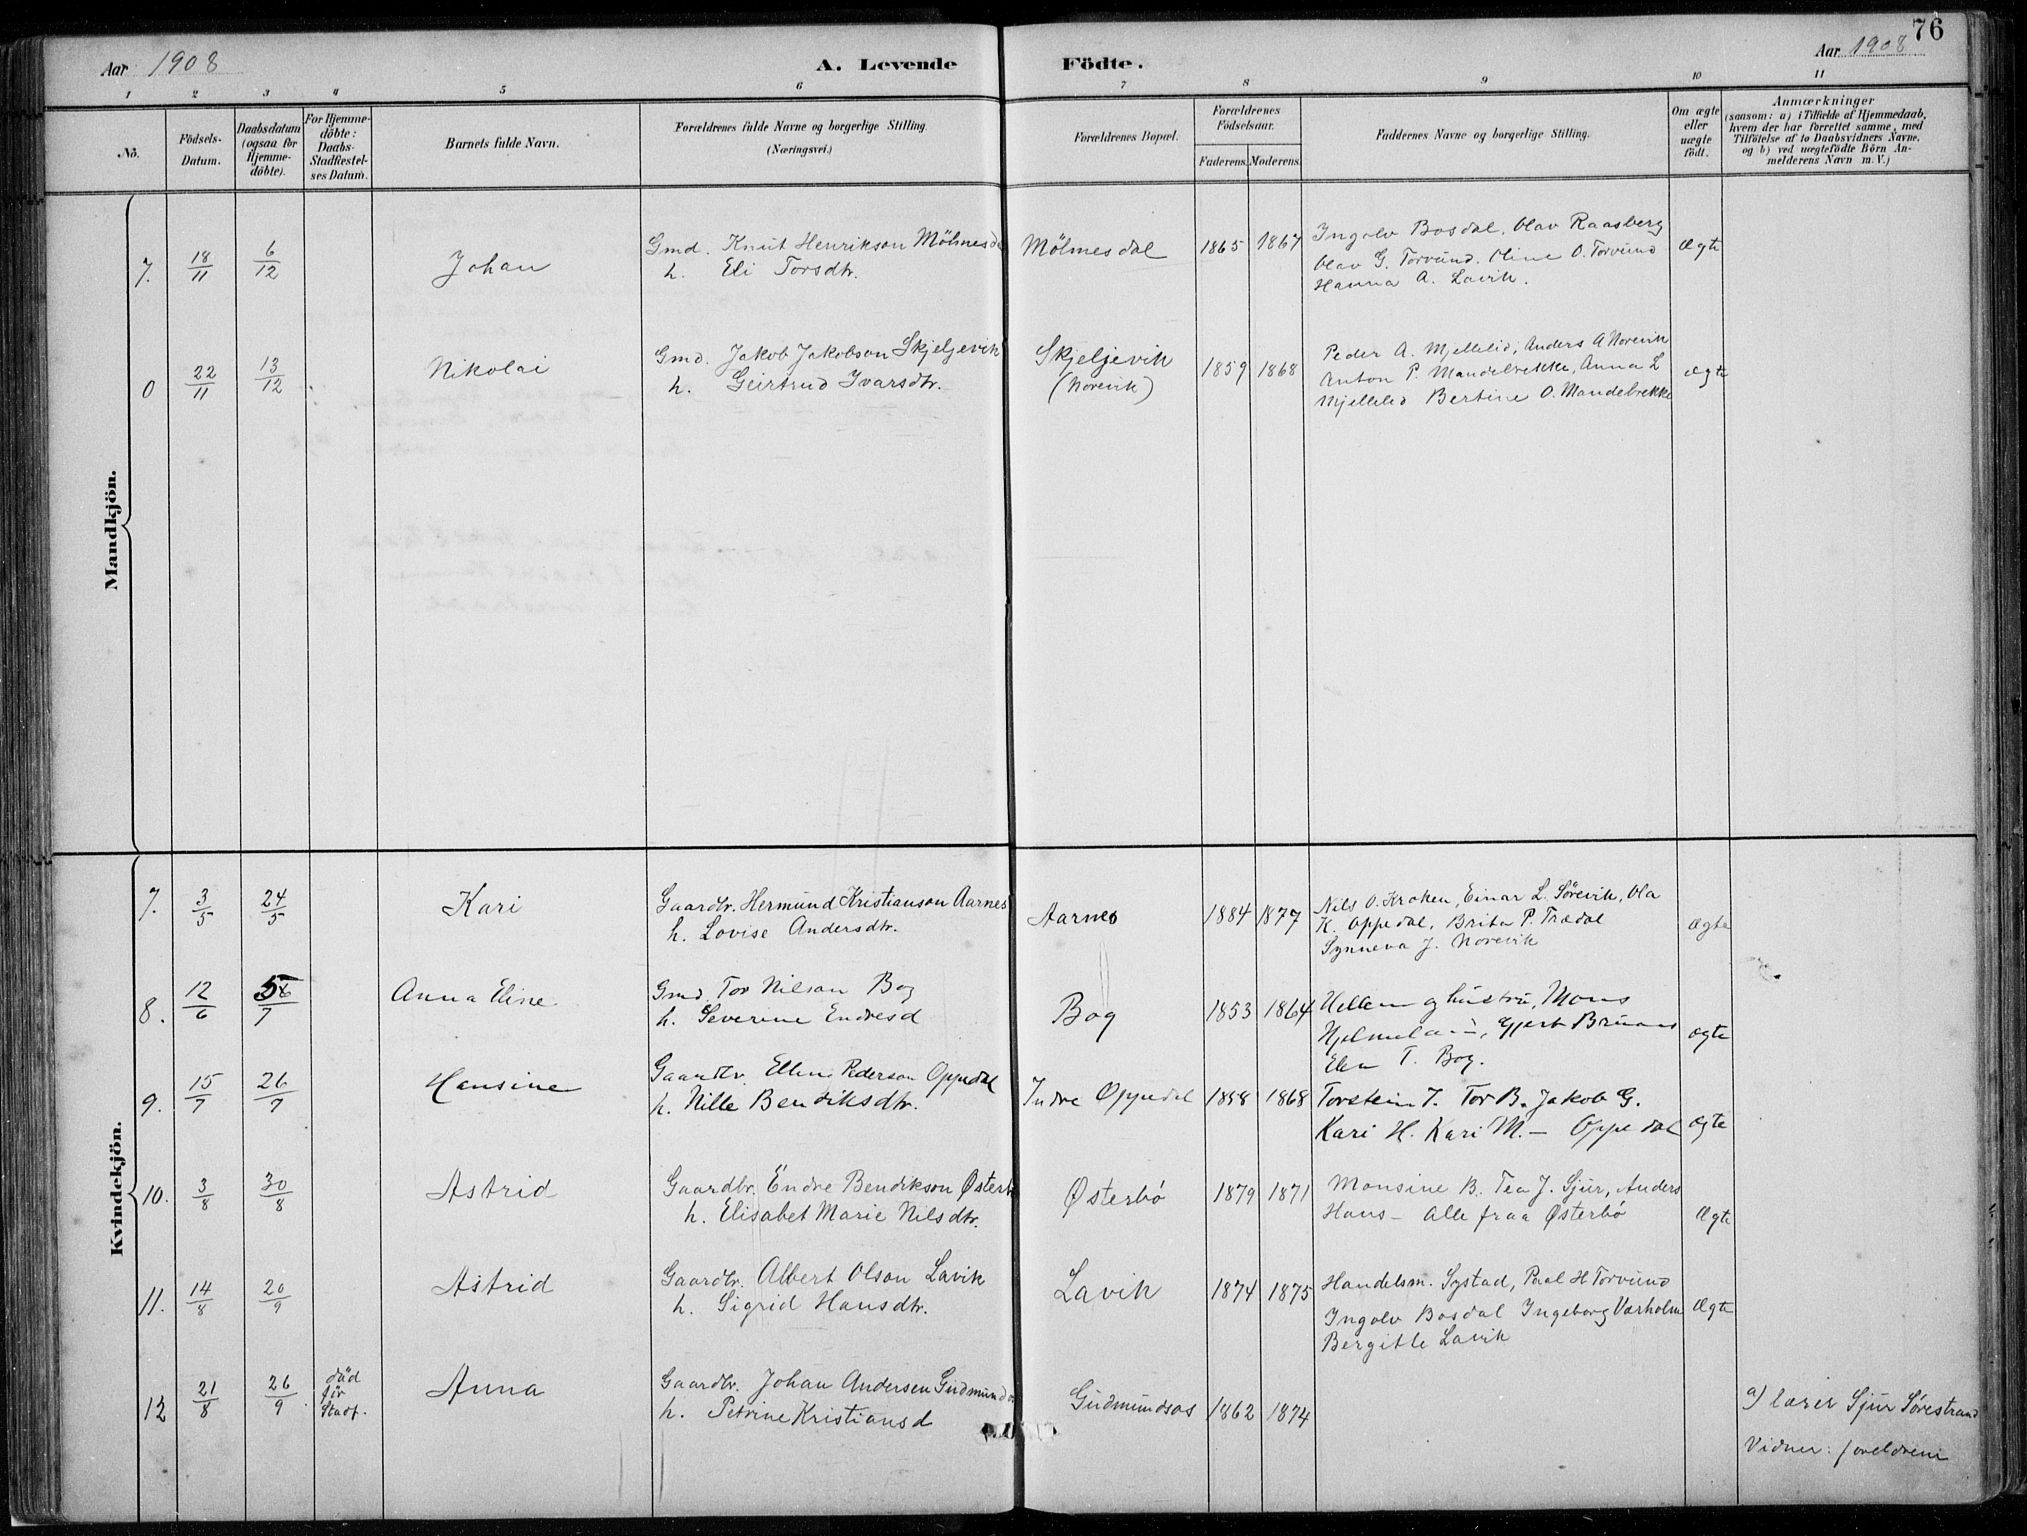 76
Aar 1908 A. Levende Födte. Aar 1908
1 2 3 4 5 6 7 8 9 10 11
No.
Födsels-
Datum.
Daabsdatum
(ogsaa for
Hjemme-
döbte).
For Hjemme-
döbte:
Daabs-
Stadfæstel-
ses Datum.
Barnets fulde Navn.
Forældrenes fulde Navne og borgerlige Stilling.
(Næringsvei.)
Forældrenes Bopæl.
Forældrenes
Födselsaar.
Faderens. Moderens.
Faddernes Navne og borgerlige Stilling.
Om ægte
eller
uægte
födt.
Anmærkninger
(saasom: a) i Tilfælde af Hjemmedaab,
hvem der har forrettet samme, med
Tilföielse af to Daabsvidners Navne.
og b) ved uægtefödte Börn An-
melderens Navn m. V.)
Mandkjön.
7. 18/11 6/12 Johan
Gmd. Knut Henrikson Mölmesda
h. Eli Torsdtr.
Mölmesdal 1865 1867
Ingolv Bosdal, Olav Raasberg
Olav G. Torvund. Oline O. Torvund
Hanna A. Lavik.
Ægte
0 22/11 13/12 Nikolai
Gmd. Jakob Jakobson Skjeljevik
h. Geirtrud Ivarsdtr.
Skjeljevik
(Norevik)
1859 1868
Peder A. Mjellelid, Anders A Norevik
Anton P. Mandelbrekke, Anna L
Mjellelid Bertine O. Mandelbrekke
ægte
Kvindekjön.
7. 3/5 24/5 Kari
Gaardbr. Hermund Kristianson Aarnes
h. Lovise Andersdtr.
Aarnes 1884 1877
Nils O. Kroken, Einar L. Sørevik, Ola
K. Oppedal, Brita P. Trædal
Synneva J. Norevik
ægte
8. 12/6 5/7 Anna Eline
Gmd. Tor Nilson Bog
h. Severine Endresd
Bog 1853 1864
og hustru, Mons
Gjert
Elen T. Bog.
ægte
9. 15/7 26/7 Hansine
Gaardbr. Elling Pederson Oppedal
h. Nille Bendiksdtr.
Indre Oppedal 1858 1868
Torstein T. Tor B. Jakob G.
Kari H. Kari M. — Oppedal
ægte
10. 3/8 30/8 Astrid
Gaardbr. Endre Bendikson Østerb
h. Elisabet Marie Nilsdtr.
Østerbö 1879 1871
Monsine B. Tea J. Sjur, Anders
Hans — Alle fraa Østerbö
Ægte
11. 14/8 20/9 Astrid
Gaardbr. Albert Olson Lavik
h. Sigrid Hansdtr.
Lavik 1874 1875
Handelsm. Systad, Paal H Torvund
Ingolv Bosdal Ingeborg Værholm
Bergitte Lavik
Ægte
12 21/8 26/9
död
för
Stadf.
Anna
Gaardbr. Johan Andersen Gudmunds
h. Petrine Kristiansd
Gudmundsos 1862 1874
a) lærer Sjur Sørestrand
Vidner: foreldrene